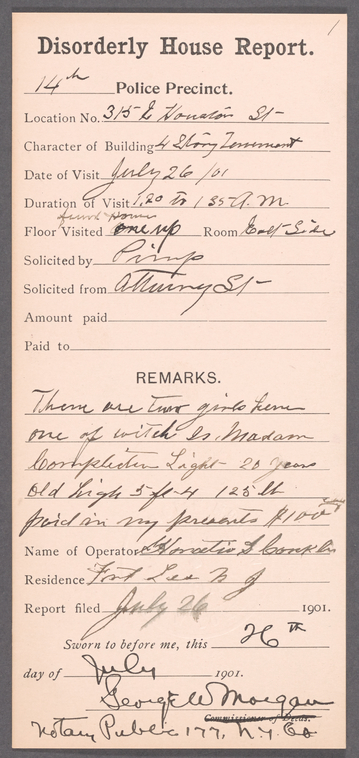 1
Disorderly House Report.
14th Police Precinct.
Location No. 315 E Houston St
Character of Building 4 Story Tenement
Date of Visit July 26/01
Duration of Visit 1.20 to 1 35 A.M.
House
Floor Visited one up Room East Side
Solicited by Pimp
Solicited from Attorney St
Amount paid
Paid to
REMARKS.
There are two girls here
one of witch Is Madam
Complection Light 20 years
old high 5 ft 4 125 lb
paid in my presents $1.00
Name of Operator Horatio S Conklin
Residence Fort Lee N J
Report filed July 26 1901.
Sworn to before me, this 26th
day of July 1901.
George W Morgan
Commissioner of Deeds.
Notary Public 177, N.Y. Co